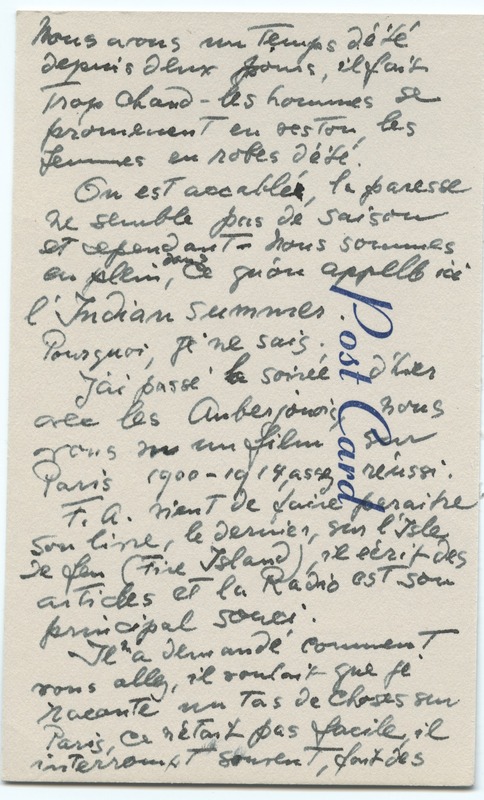 Nous avons un temps d'été
depuis deux jours, il fait
trop chaud - les hommes se
promènent en veston, les
femmes en robes d'été.
On est accablé, la paresse
ne semble pas de saison
et cependant - nous sommes
en plein, dans ce qu'on appelle ici
l'Indian Summer.
Pourquoi, je ne sais.
J'ai passé la soirée d'hier
avec les Auberjonois, nous
avons vu un film sur
Paris 1900-1914, assez réussi.
F. A. vient de faire paraitre
son livre, le dernier, sur l'Isle
de feu (Fire Island), il écrit des
articles et la Radio est son
principal souci.
Il m'a demandé comment
vous allez, il voulait que je
raconte un tas de choses sur
Paris, ce n'était pas facile, il
interrompt souvent, fait des
Post Card